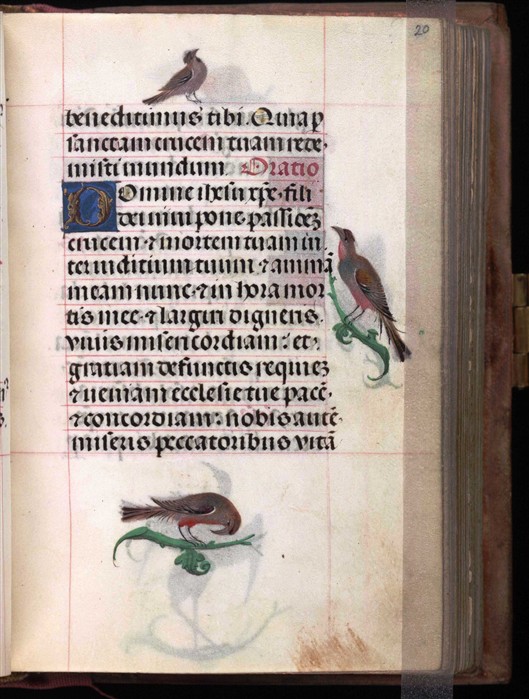 20
benedicimus tibi. Quia p
sanctam crucem tuam rede-
misti mundum. Oratio
Domine ihesu xpe fili
dei vivi pone passionē
crucem ⁊ mortem tuam in
ter iudicium tuum ⁊ animā
meam nunc ⁊ in hora mor
tis mee ⁊ largiri digneris.
vivis misericordiam: et
gratiam defunctis requiē
⁊ veniam ecclesie tue pacē
⁊ concordiam: nobis autē
miseris peccatoribus vitā